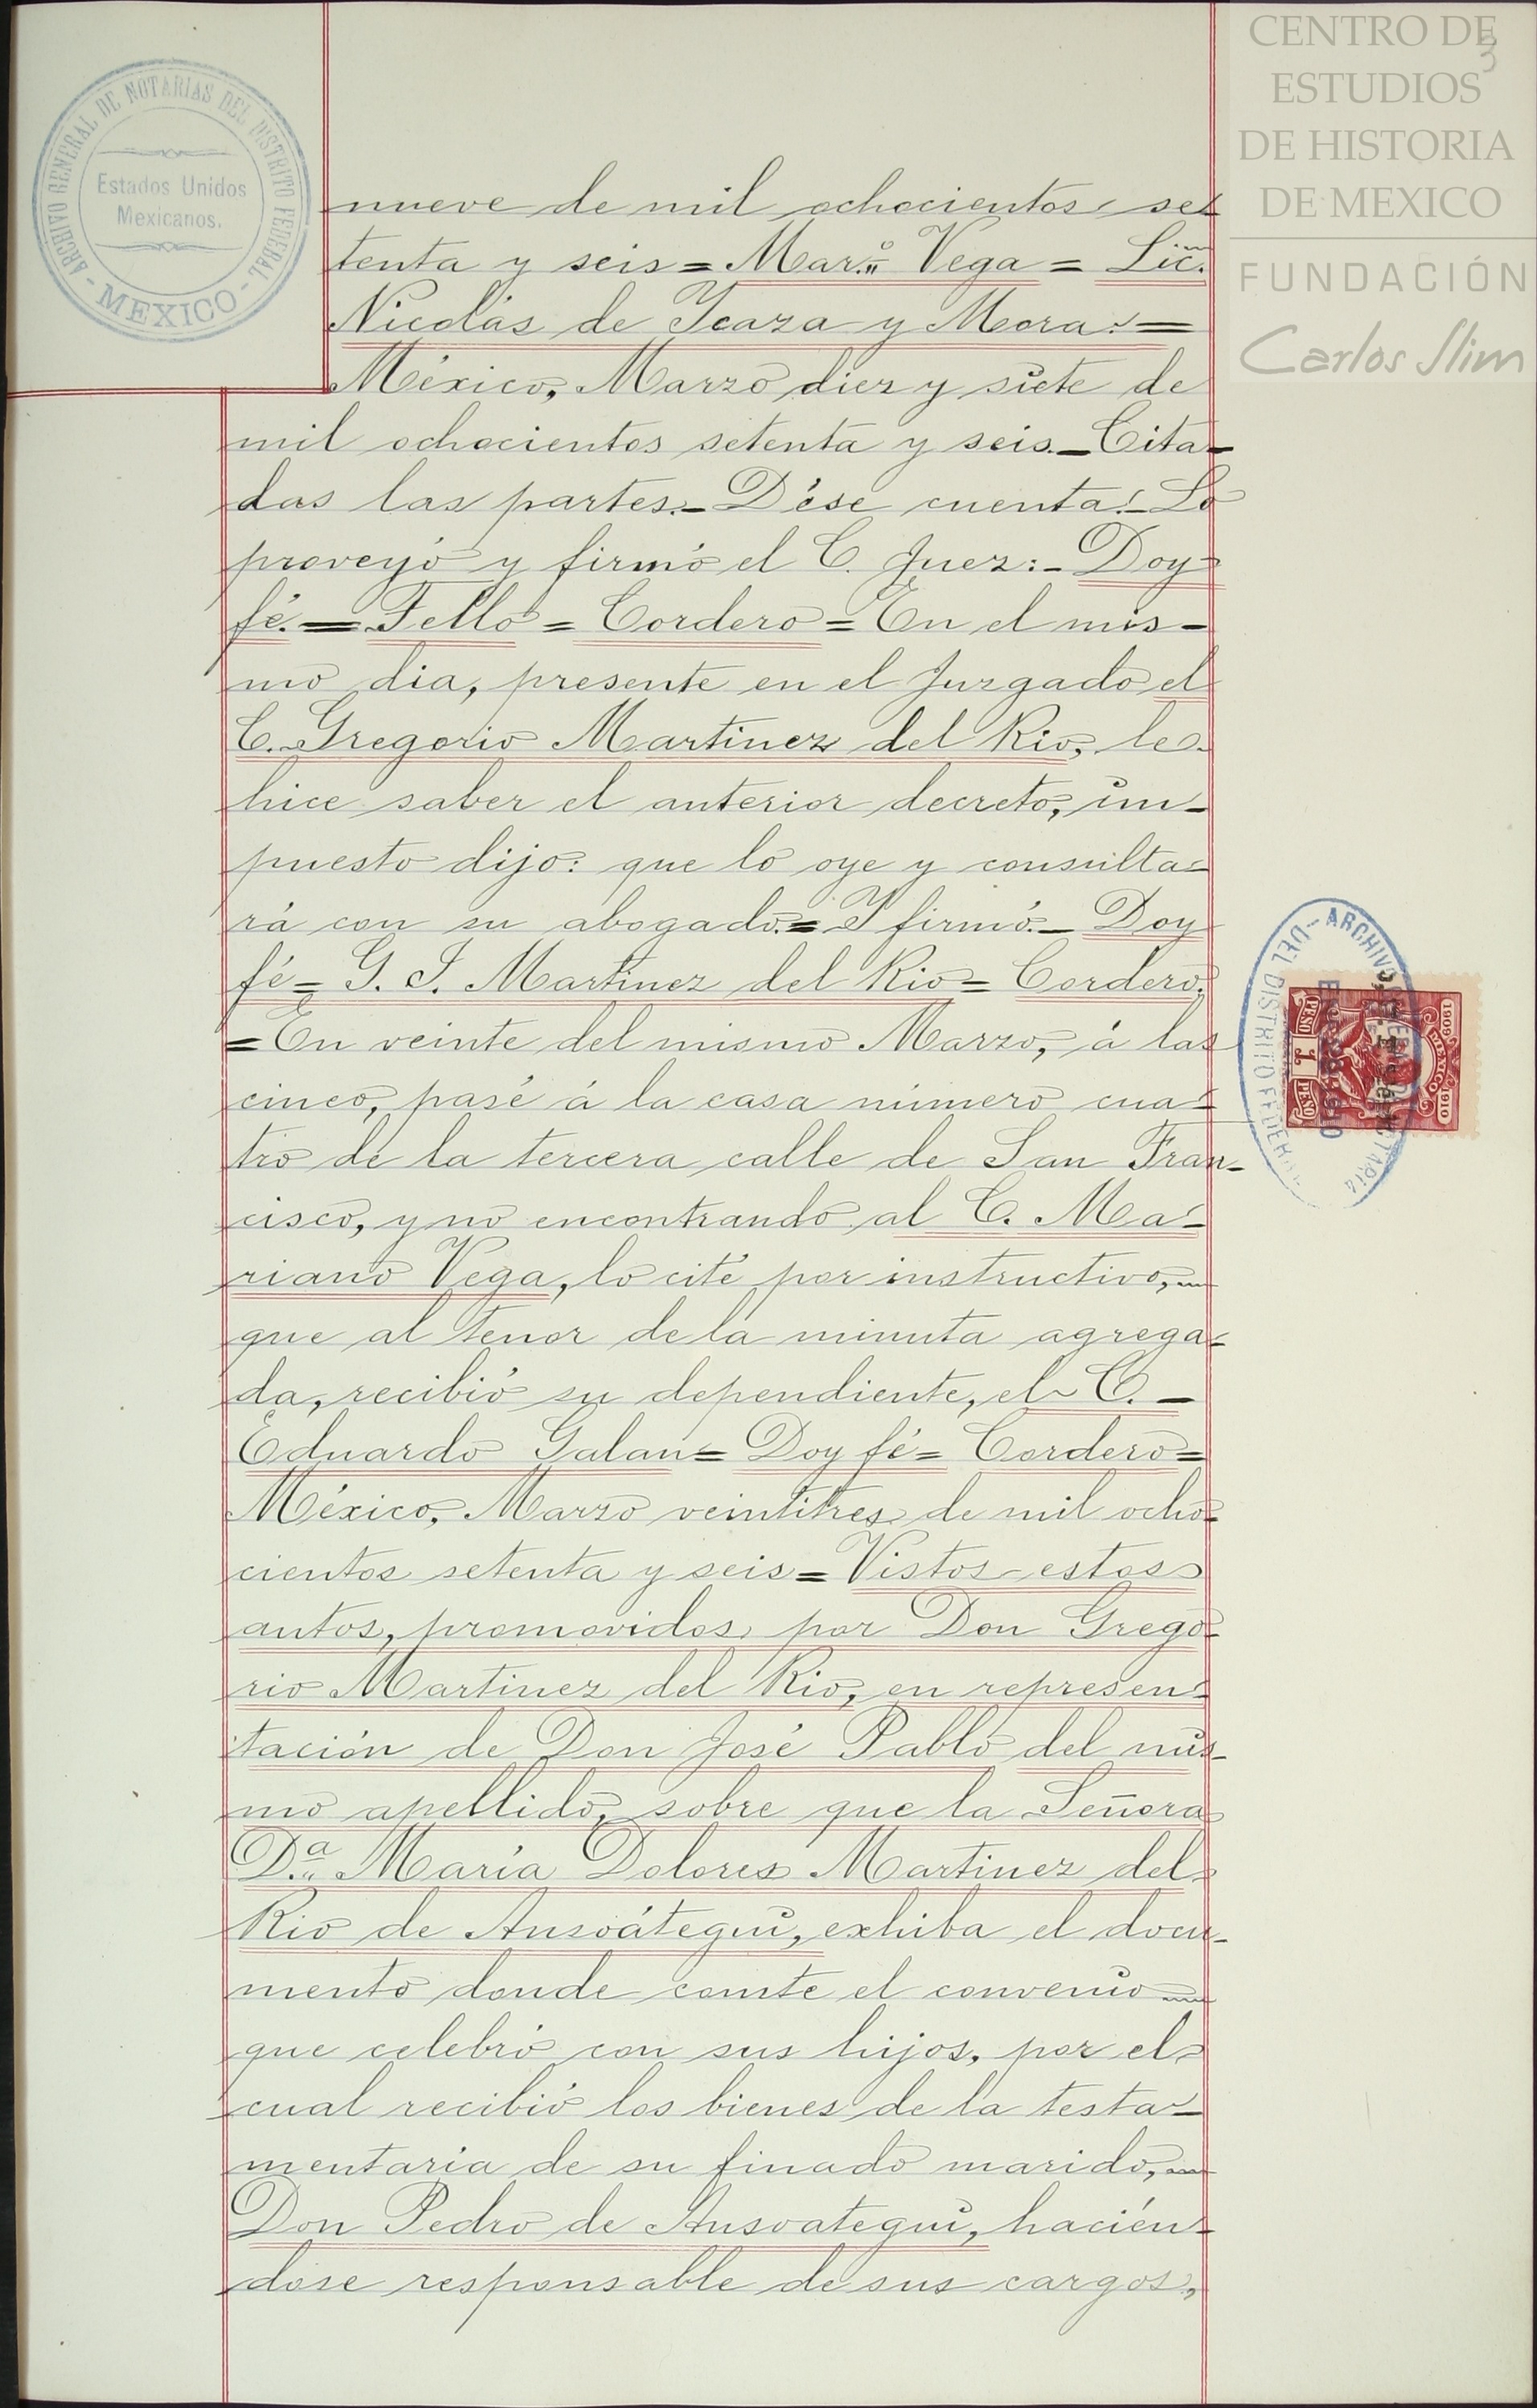 CENTRO DE
ESTUDIOS
DE HISTORIA
DE MEXICO
FUNDACIÓN
Carlos Slim
3
ARCHIVO GENERAL DE NOTARIAS DEL DISTRITO FEDERAL
- MEXICO -
Estados Unidos
Mexicanos.
nueve de mil ochocientos se-
tenta y seis = Mar.º Vega = Lic.
Nicolás de Icaza y Mora. =
México, Marzo diez y siete de
mil ochocientos setenta y seis. - Cita-
das las partes. - Dése cuenta. - Lo
proveyó y firmó el C. Juez: - Doy
fé. = Tello = Cordero = En el mis-
mo dia, presente en el Juzgado el
C. Gregorio Martinez del Rio, le
hice saber el anterior decreto, im-
puesto dijo: que lo oye y consulta-
rá con su abogado. = Y firmó. - Doy
fé = G. I. Martinez del Rio = Cordero.
= En veinte del mismo Marzo, á las
cinco, pasé á la casa número cua-
tro de la tercera calle de San Fran-
cisco, y no encontrando al C. Ma-
riano Vega, lo cité por instructivo,
que al tenor de la minuta agrega-
da, recibió su dependiente, el C. -
Eduardo Galan = Doy fé = Cordero =
México, Marzo veintitres de mil ocho-
cientos setenta y seis = Vistos estos
autos, promovidos por Don Grego-
rio Martinez del Rio, en represen-
tación de Don José Pablo del mis-
mo apellido, sobre que la Señora
D.ª María Dolores Martinez del
Rio de Ansoátegui, exhiba el docu-
mento donde conste el convenio
que celebró con sus hijos, por el
cual recibió los bienes de la testa-
mentaria de su finado marido,
Don Pedro de Ansoategui, hacién-
dose responsable de sus cargos,
ARCHIVO
DEL DISTRITO FEDERAL
1909 MEXICO 1910
PESO 1 PESO